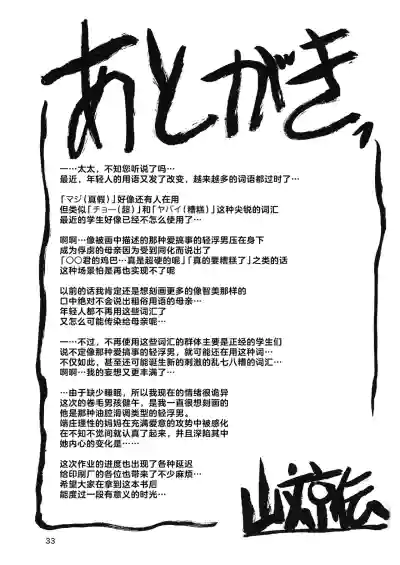 あとがき
一…太太，不知您听说了吗…
最近，年轻人的用语又发了改变，越来越多的词语都过时了…
「マジ(真假)」好像还有人在用
但类似「チョー(超)」和「ヤバイ(糟糕)」这种尖锐的词汇
最近的学生好像已经不怎么使用了…
啊啊…像被画中描述的那种爱搞事的轻浮男压在身下
成为俘虏的母亲因为受到同化而说出了
「〇〇君的鸡巴…真是超硬的呢」「真的要糟糕了」之类的话
这种场景怕是再也实现不了呢
以前的话我肯定还是想刻画更多的像智美那样的
口中绝对不会说出粗俗用语的母亲…
年轻人都不再用这些词汇了
又怎么可能传染给母亲呢…
一…不过，不再使用这些词汇的群体主要是正经的学生们
说不定像那种爱搞事的轻浮男，就可能还在用这种词…
不仅如此，甚至还可能诞生新的刺激的乱七八糟的词汇…
啊啊…我的妄想又更丰满了…
…由于缺少睡眠，所以我现在的情绪很诡异
这次的卷毛男孩健午，是我一直很想刻画的
他是那种油腔滑调类型的轻浮男。
端庄理性的妈妈在充满爱意的攻势中被感化
在不知不觉间就认真了起来，并且深陷其中
她内心的变化是……
这次作业的进度也出现了各种延迟
给印刷厂的各位也带来了不少麻烦…
希望大家在拿到这本书后
能度过一段有意义的时光…
33